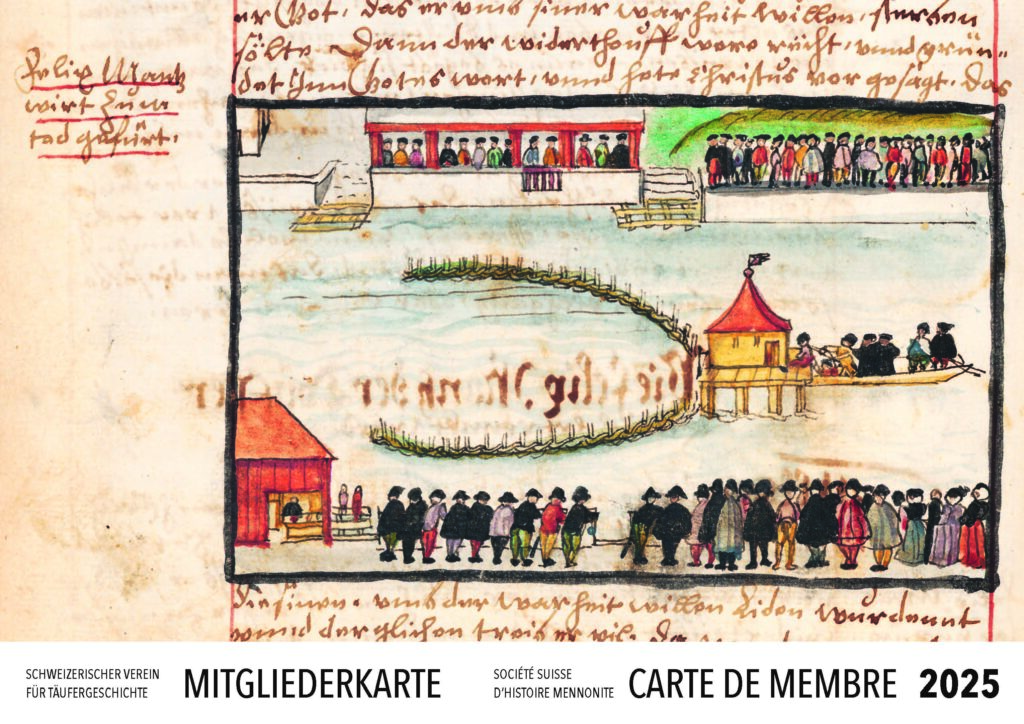 er Got, das er umb siner warheit willen, sterben
sölte. Dann der widerthouff were rächt, unnd grün-
det Inn Gotes wort, unnd hete Christus vor gesagt, das
Felix Mantz
wirt zum
tod gefürt.
die sinen, umb der warheit willen liden wurdennt
unnd der glichen treib er vil, da
SCHWEIZERISCHER VEREIN
FÜR TÄUFERGESCHICHTE
MITGLIEDERKARTE
SOCIÉTÉ SUISSE
D'HISTOIRE MENNONITE
CARTE DE MEMBRE 2025